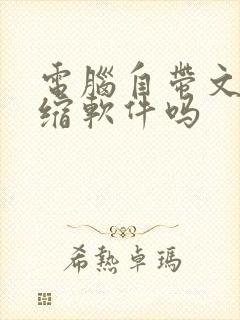 電腦自帶文
缩軟件吗
希熱卓瑪